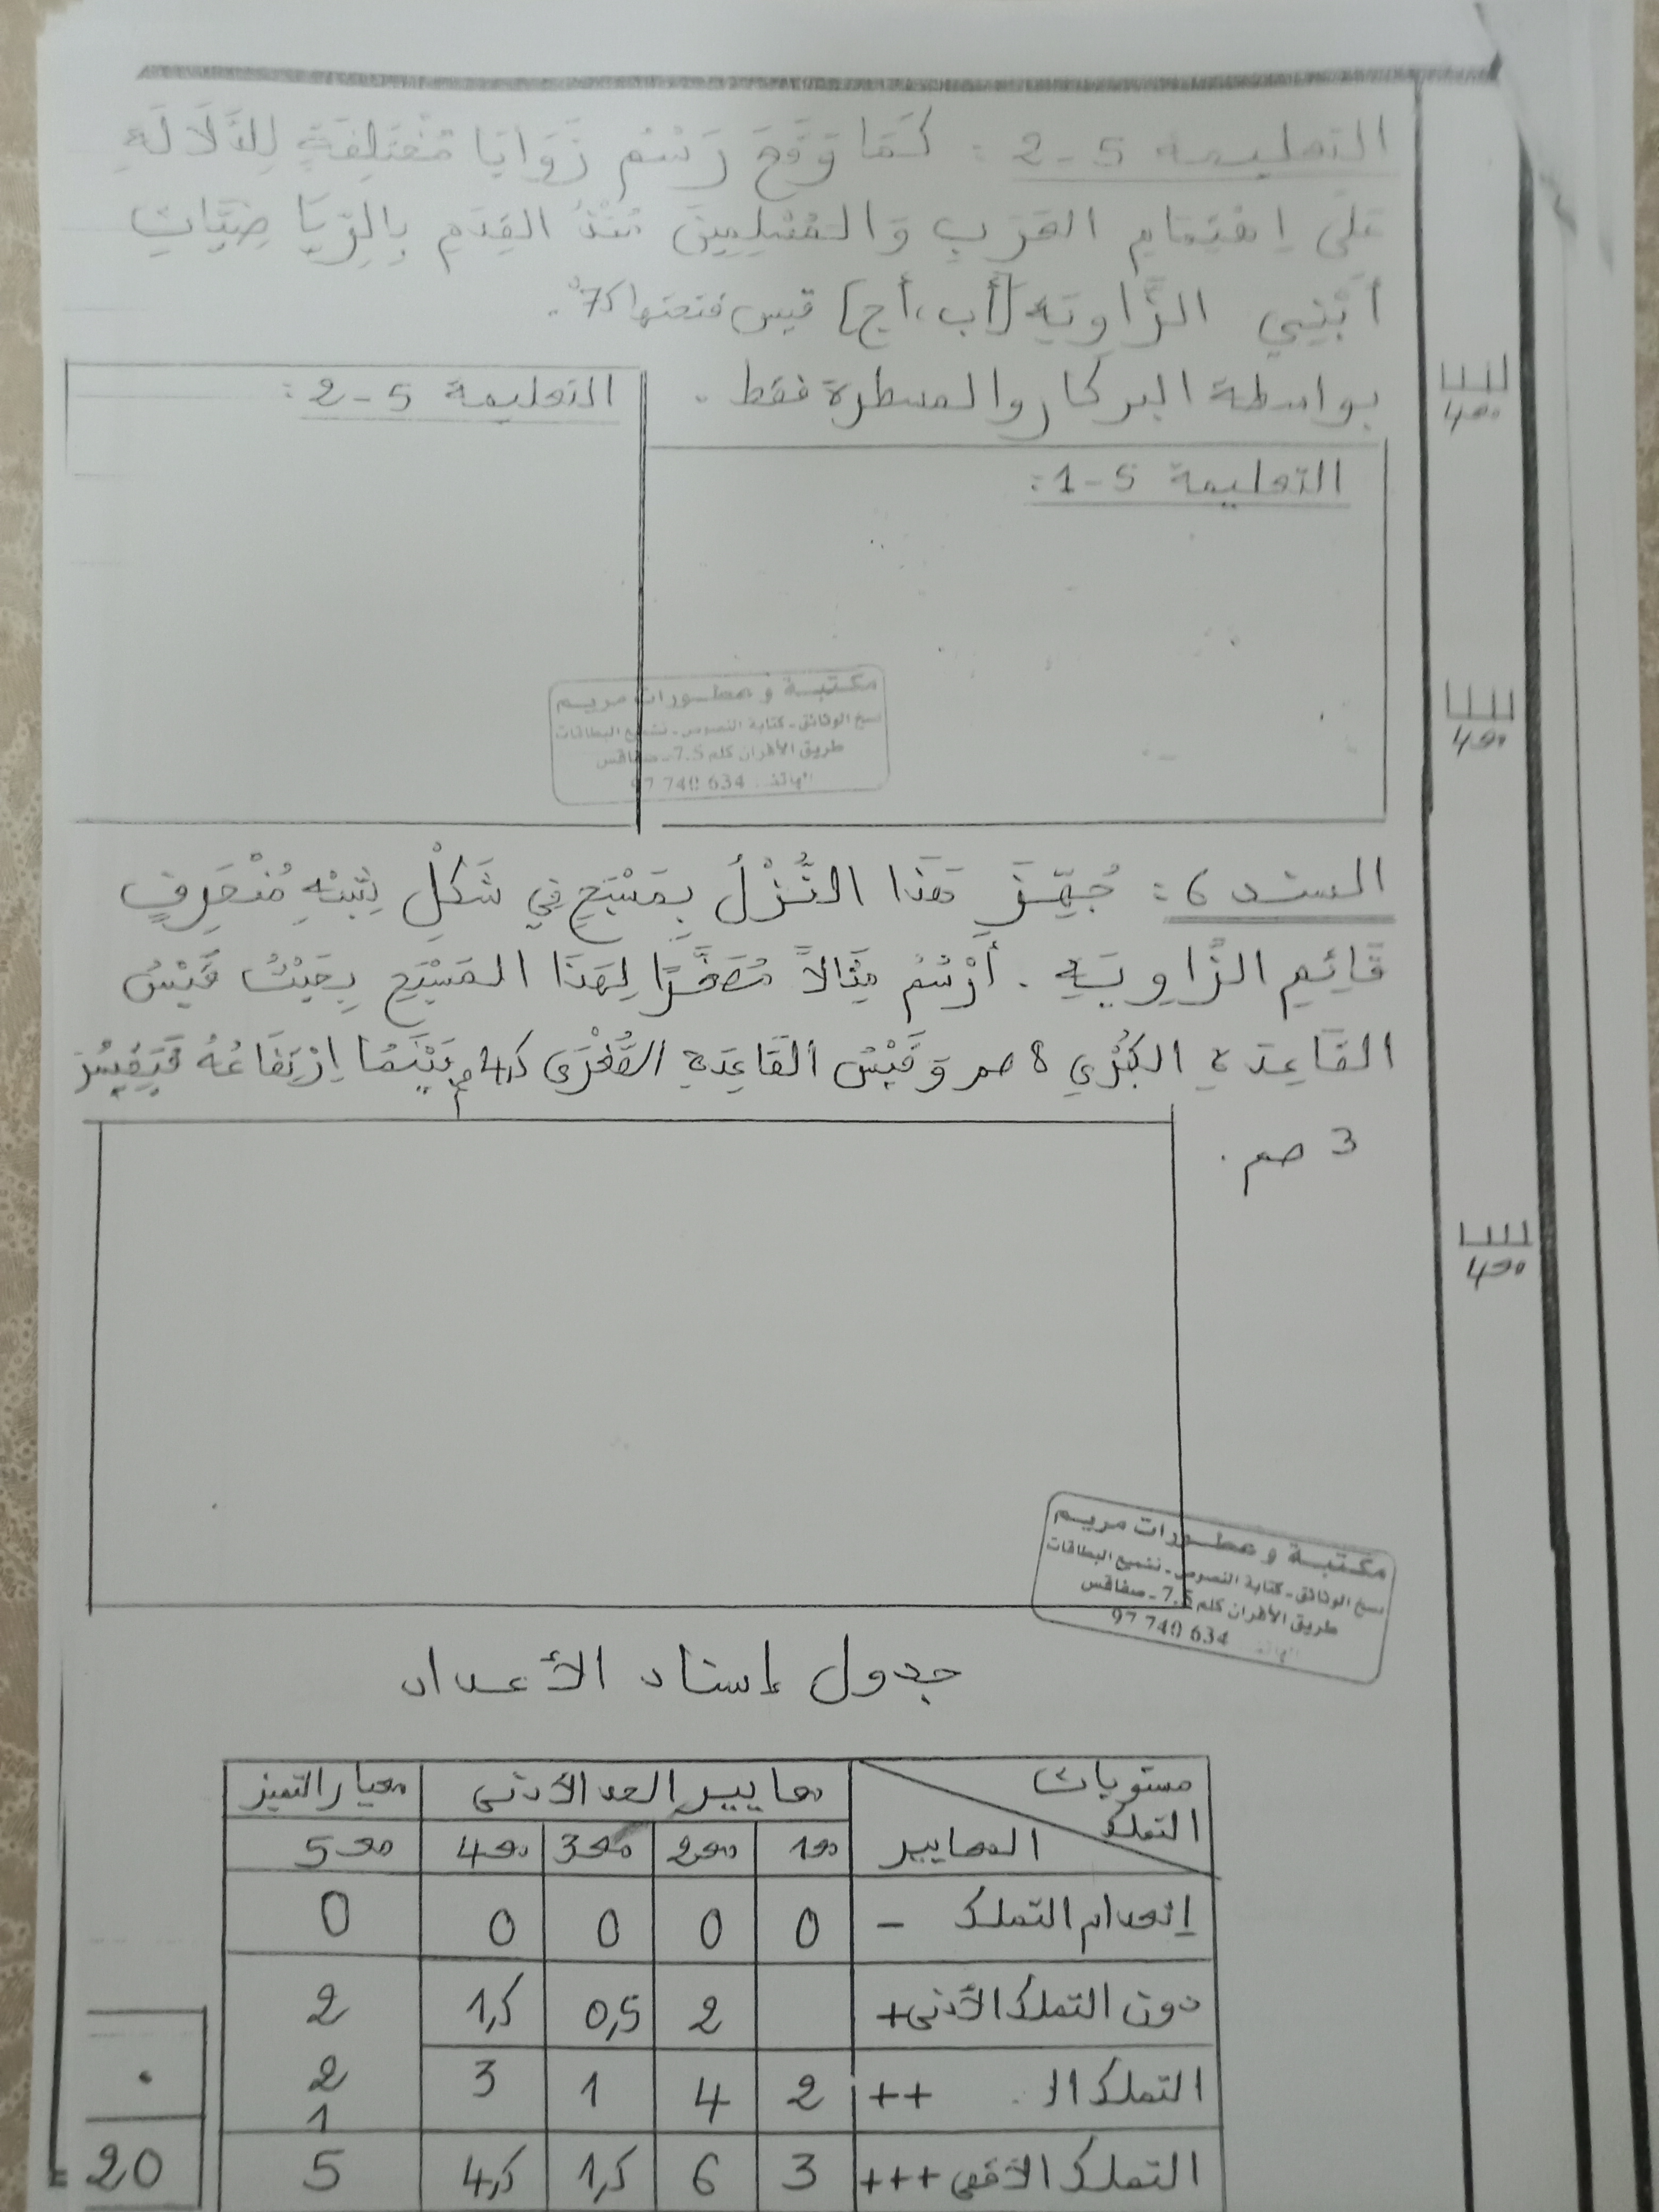 التعليمة 5-2 : كَمَا وَقَعَ رَسْمُ زَوَايَا مُخْتَلِفَةٍ لِلدَّلَالَةِ
عَلَى اِهْتِمَامِ العَرَبِ وَالمُسْلِمِينَ مُنْذُ القِدَمِ بِالرِّيَاضِيَّاتِ
أَبْنِي الزَّاوِيَة [أب، أج] قيس فتحتها 75°.
بواسطة البركار والمسطرة فقط.
مع4
التعليمة 5-2:
التعليمة 5-1:
مكتبة و عطورات مريم
نسخ الوثائق - كتابة النصوص - تشميع البطاقات
طريق الأفران كلم 7.5 - صفاقس
الهاتف: 97 740 634
مع4
السند 6: جُهِّزَ هَذَا النُّزْلُ بِمَسْبَحٍ فِي شَكْلِ شِبْهِ مُنْحَرِفٍ
قَائِمِ الزَّاوِيَةِ. أَرْسُمُ مِثَالاً مُصَغَّرًا لِهَذَا المَسْبَحِ بِحَيْثُ قَيْسُ
القَاعِدَةِ الكُبْرَى 8 صم وَقَيْسُ القَاعِدَةِ الصُّغْرَى 4,5 صم بَيْنَمَا اِرْتِفَاعُهُ فَيَقِيسُ
3 صم.
مع4
مكتبة و عطورات مريم
نسخ الوثائق - كتابة النصوص - تشميع البطاقات
طريق الأفران كلم 7.5 - صفاقس
الهاتف: 97 740 634
جدول إسناد الأعداد
مستويات التملك المعايير معايير الحد الأدنى معيار التميز
مع1 مع2 مع3 مع4 مع5
إنعدام التملك - 0 0 0 0 0
دون التملك الأدنى + 2 0,5 1,5 2
التملك الا ++ 2 4 1 3 2
1
التملك الأقصى +++ 3 6 1,5 4,5 5
20